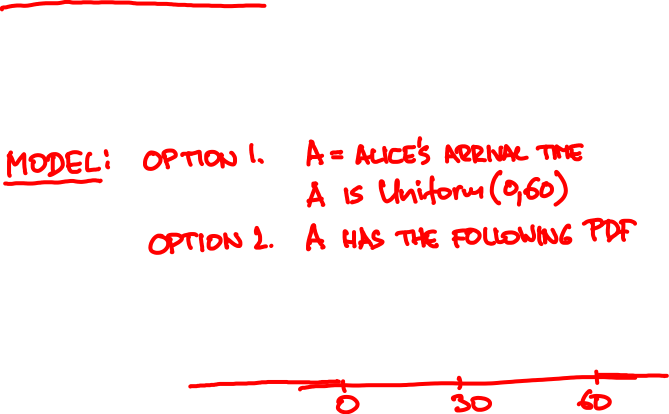 MODEL: OPTION 1. A = ALICE'S ARRIVAL TIME
A IS Uniform (0,60)
OPTION 2. A HAS THE FOLLOWING PDF
0 30 60